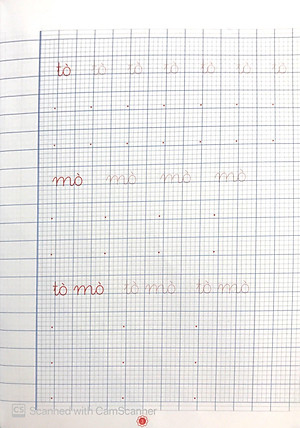 tò tò tò tò tò tò tò
mò mò mò mò
tò mò tò mò tò mò
CS Scanned with CamScanner